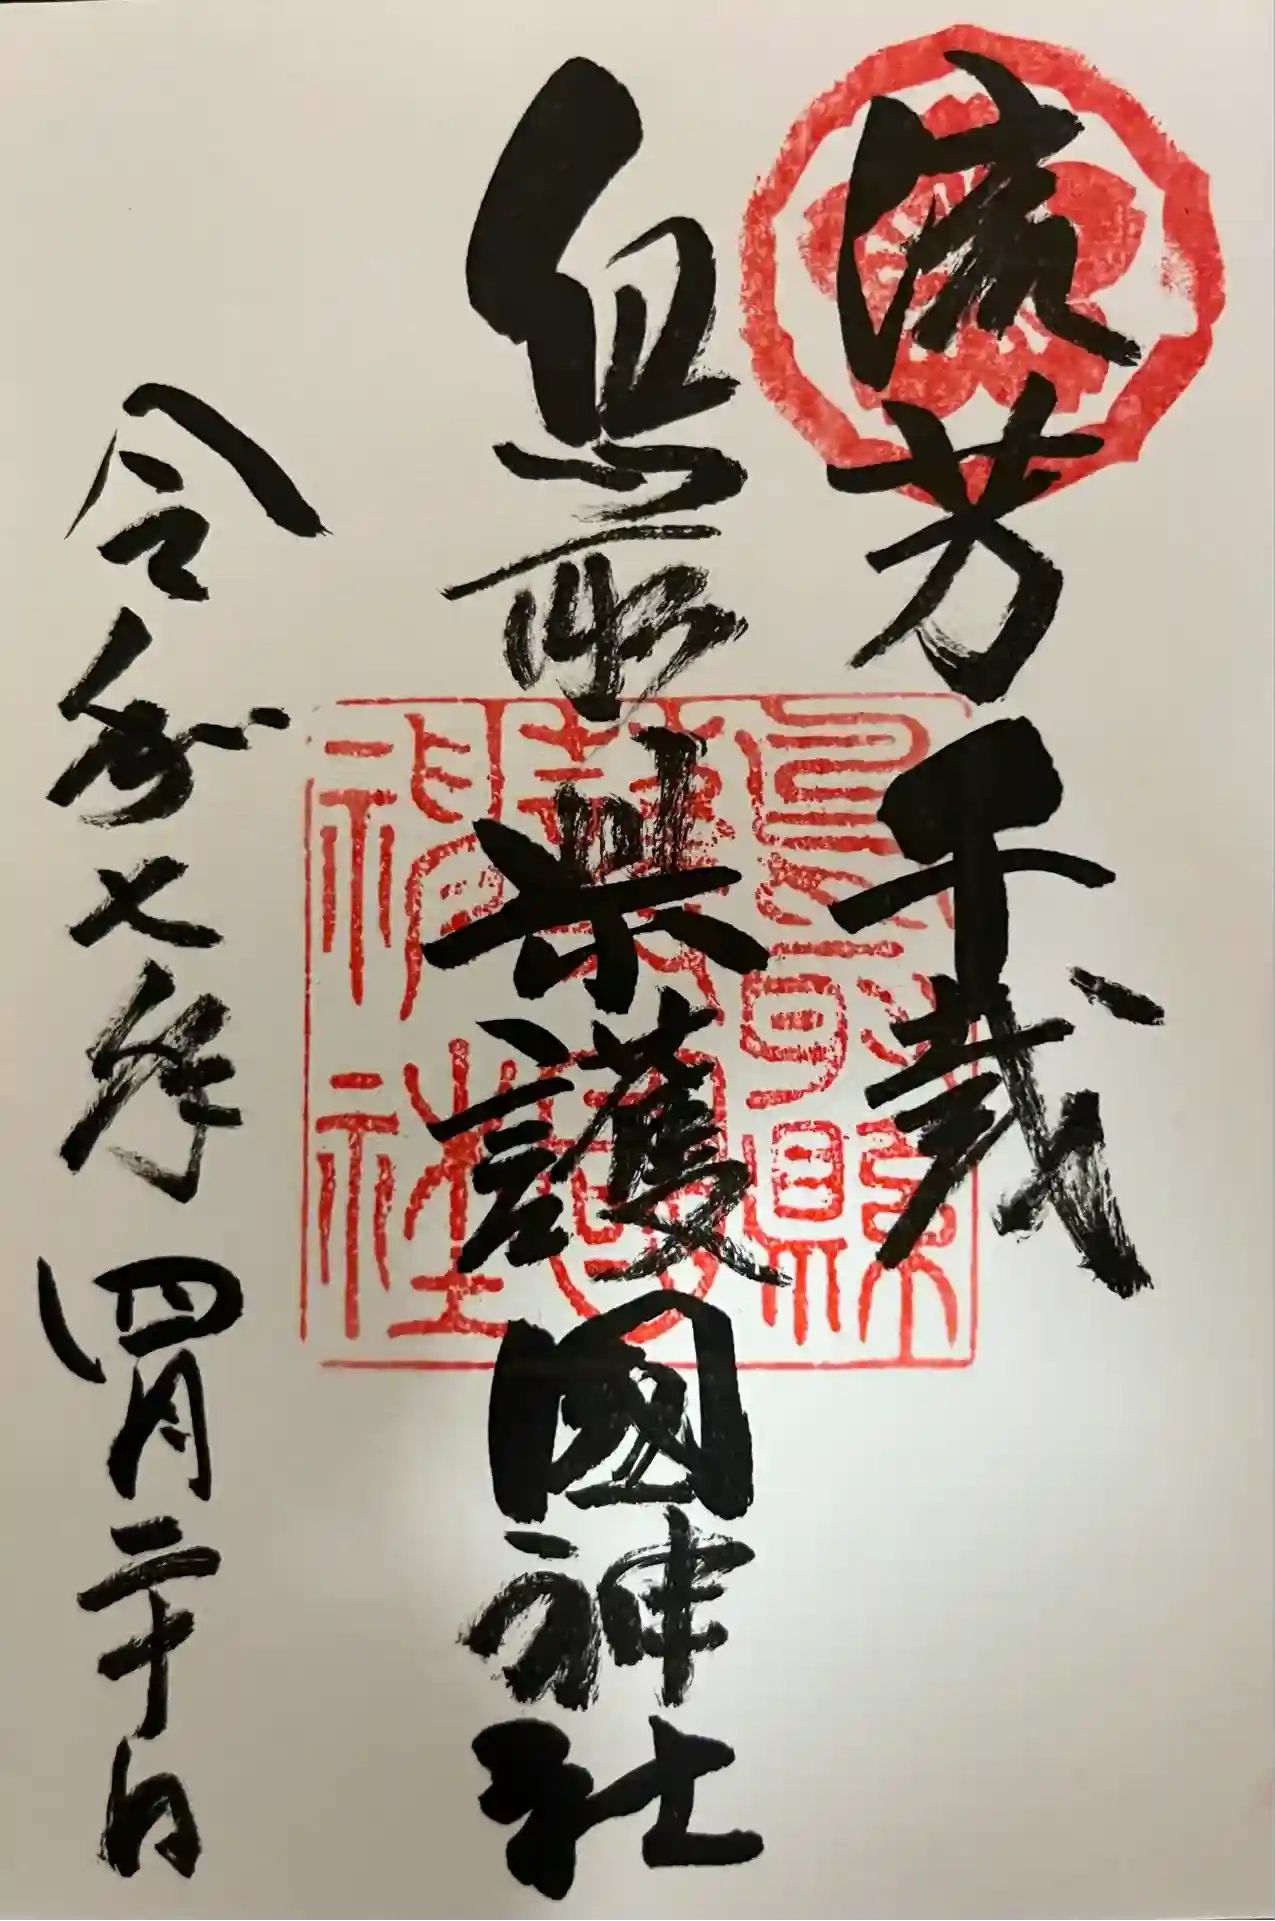 流芳千載
鳥取県護國神社
令和七年四月二十日
鳥取縣
護國
神社